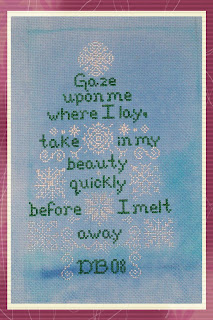 Gaze
upon me
where I lay,
take in my
beauty
quickly
before I melt
away
DB 08